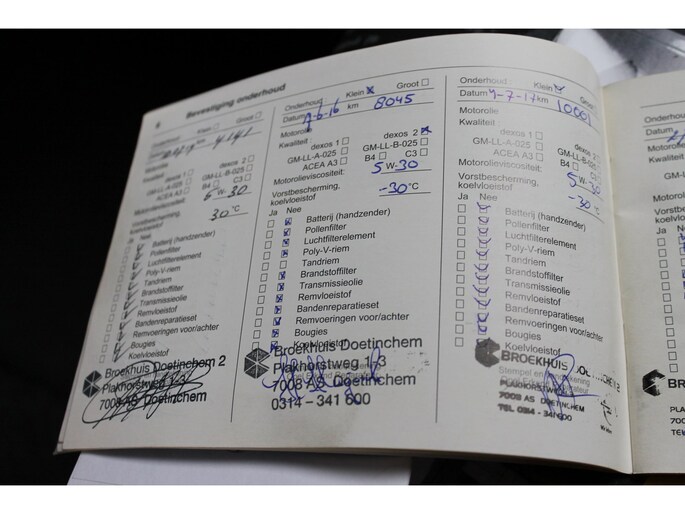 8 Bevestiging onderhoud
Onderhoud Klein Groot
Datum km
Motorolie
Kwaliteit
dexos 1 dexos 2
GM-LL-A-025 GM-LL-B-025
ACEA A3 B4 C3
Motorolieviscositeit: 5 W-30
Vorstbescherming,
koelvloeistof 30 °C
Ja Nee
Batterij (handzender)
Pollenfilter
Luchtfilterelement
Poly-V-riem
Tandriem
Brandstoffilter
Transmissieolie
Remvloeistof
Bandenreparatieset
Remvoeringen voor/achter
Bougies
Koelvloeistof
Broekhuis Doetinchem 2
Plakhorstweg 1-3
7008 AS Doetinchem
Onderhoud Klein Groot
Datum 7-6-16 km 8045
Motorolie
Kwaliteit :
dexos 1 dexos 2
GM-LL-A-025 GM-LL-B-025
ACEA A3 B4 C3
Motorolieviscositeit: 5 W-30
Vorstbescherming,
koelvloeistof -30 °C
Ja Nee
Batterij (handzender)
Pollenfilter
Luchtfilterelement
Poly-V-riem
Tandriem
Brandstoffilter
Transmissieolie
Remvloeistof
Bandenreparatieset
Remvoeringen voor/achter
Bougies
Koelvloeistof
Broekhuis Doetinchem
Plakhorstweg 1-3
7008 AS Doetinchem
0314-341 600
Onderhoud : Klein Groot
Datum 4-7-17 km 10001
Motorolie
Kwaliteit :
dexos 1 dexos 2
GM-LL-A-025 GM-LL-B-025
ACEA A3 B4 C3
Motorolieviscositeit: 5 W-30
Vorstbescherming,
koelvloeistof -30 °C
Ja Nee
Batterij (handzender)
Pollenfilter
Luchtfilterelement
Poly-V-riem
Tandriem
Brandstoffilter
Transmissieolie
Remvloeistof
Bandenreparatieset
Remvoeringen voor/achter
Bougies
Koelvloeistof
BROEKHUIS DOETINCHEM 2
Stempel en
PLAKHORSTWEG
7008 AS DOETINCHEM
TEL 0314 - 341600
Onderho
Datum
Motorolie
Kwalite
GM-L
A
Motoro
Vorstb
koelvlo
Ja Ne
B
PLA
700
TEL